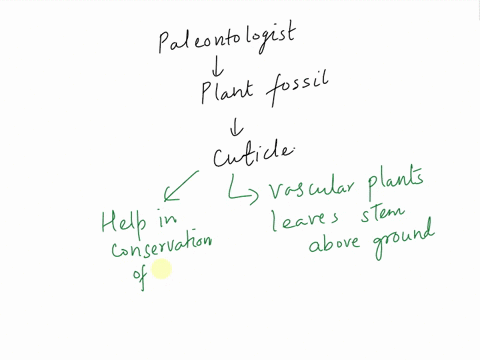 Paleontologist
Plant fossil
Cuticle.
Help in
conservation
of
vascular plants
leaves stem
above ground